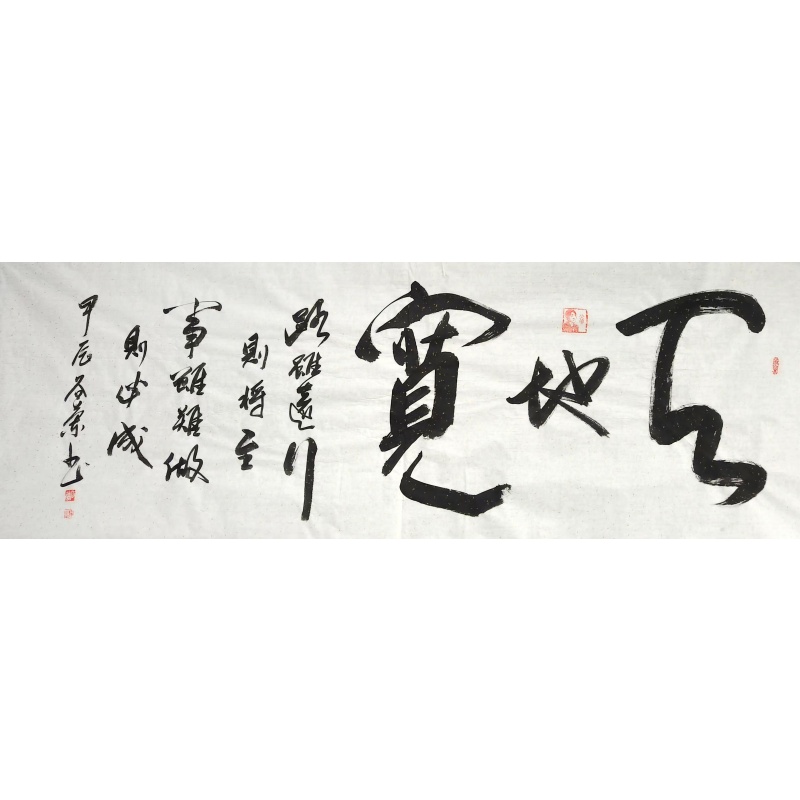 天地寬
路雖遠行
則将至
事雖難做
則必成
甲辰 书